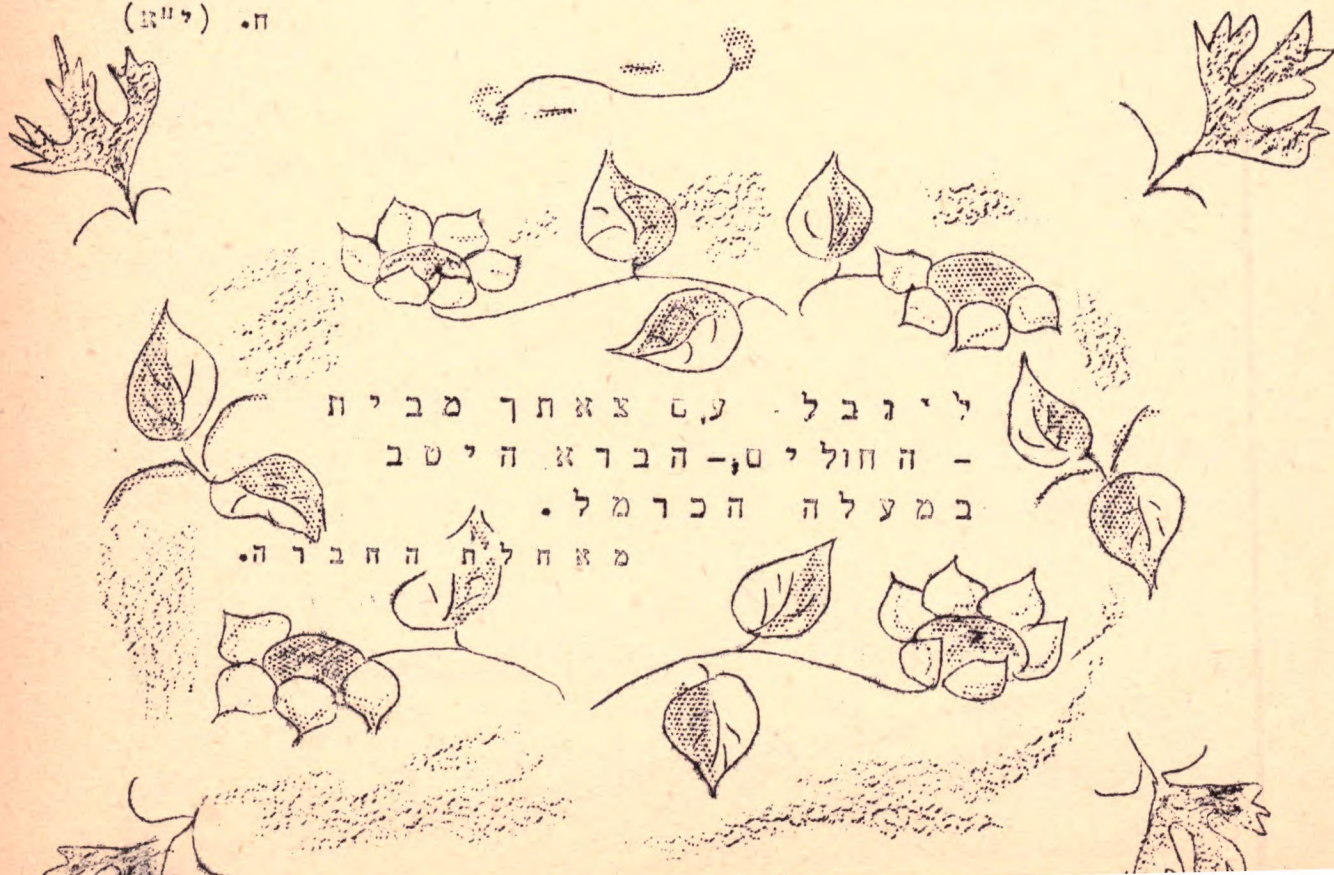 ח. (י"א)
ליובל עם צאתך מבית
- החולים,- הברא היטב
במעלה הכרמל.
מאחלת החברה.